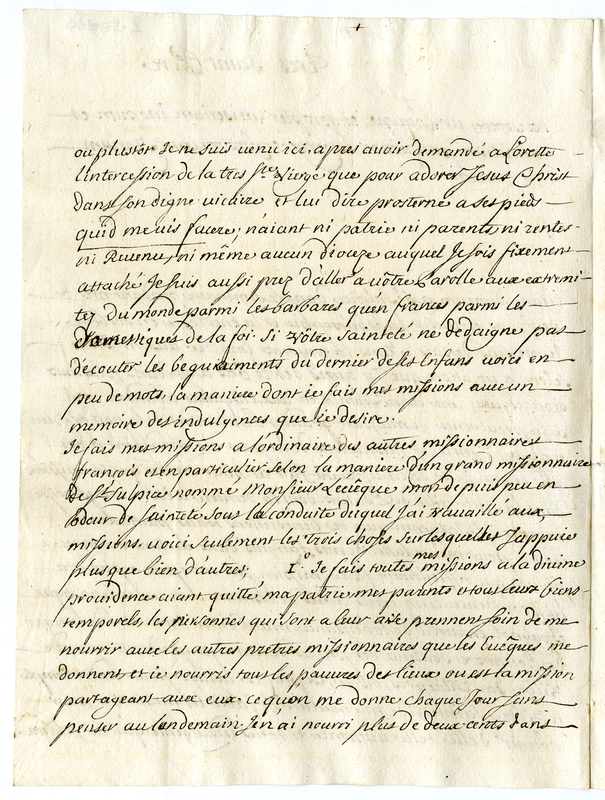 ou plustot Je ne suis venu ici, apres avoir demandé a Lorette
l'intercession de la tres Ste Vierge que pour adorer Jesus Christ
dans son digne vicaire et lui dire prosterné a ses pieds
quid me vis facere, n'aiant ni patrie ni parents ni rentes
ni Revenu, ni même aucun dioceze auquel Je sois fixement
attaché Je suis aussi prez d'aller a vôtre Parolle aux extremi-
tez du monde parmi les barbares qu'en france parmi les
domestiques de la foi. Si vôtre sainteté ne dédaigne pas
d'ecouter les beguaiments du dernier de ses Enfans voici en
peu de mots la maniere dont ie fais mes missions avec un
memoire des indulgences que ie desire.
Je fais mes missions a l'ordinaire des autres missionnaires
françois et en particulier selon la maniere d'un grand missionnaire
de St Sulpice nommé Monsieur Leveque mort depuis peu en
odeur de sainteté sous la conduite duquel J'ai travaillé aux
missions. voici seulement les trois choses sur lesquelles J'appuie
plus que bien d'autres; 1o. Je fais toutes mes missions a la divine
providence aiant quitté ma patrie mes parents et tous leurs biens
temporels, les personnes qui sont a leur aise prennent soin de me
nourrir avec les autres pretres missionnaires que les Eveques me
donnent et ie nourris tous les pauvres des lieux ou est la mission
partageant avec eux ce qu'on me donne chaque Jour sans
penser au lendemain. J'en ai nourri plus de deux cents dans